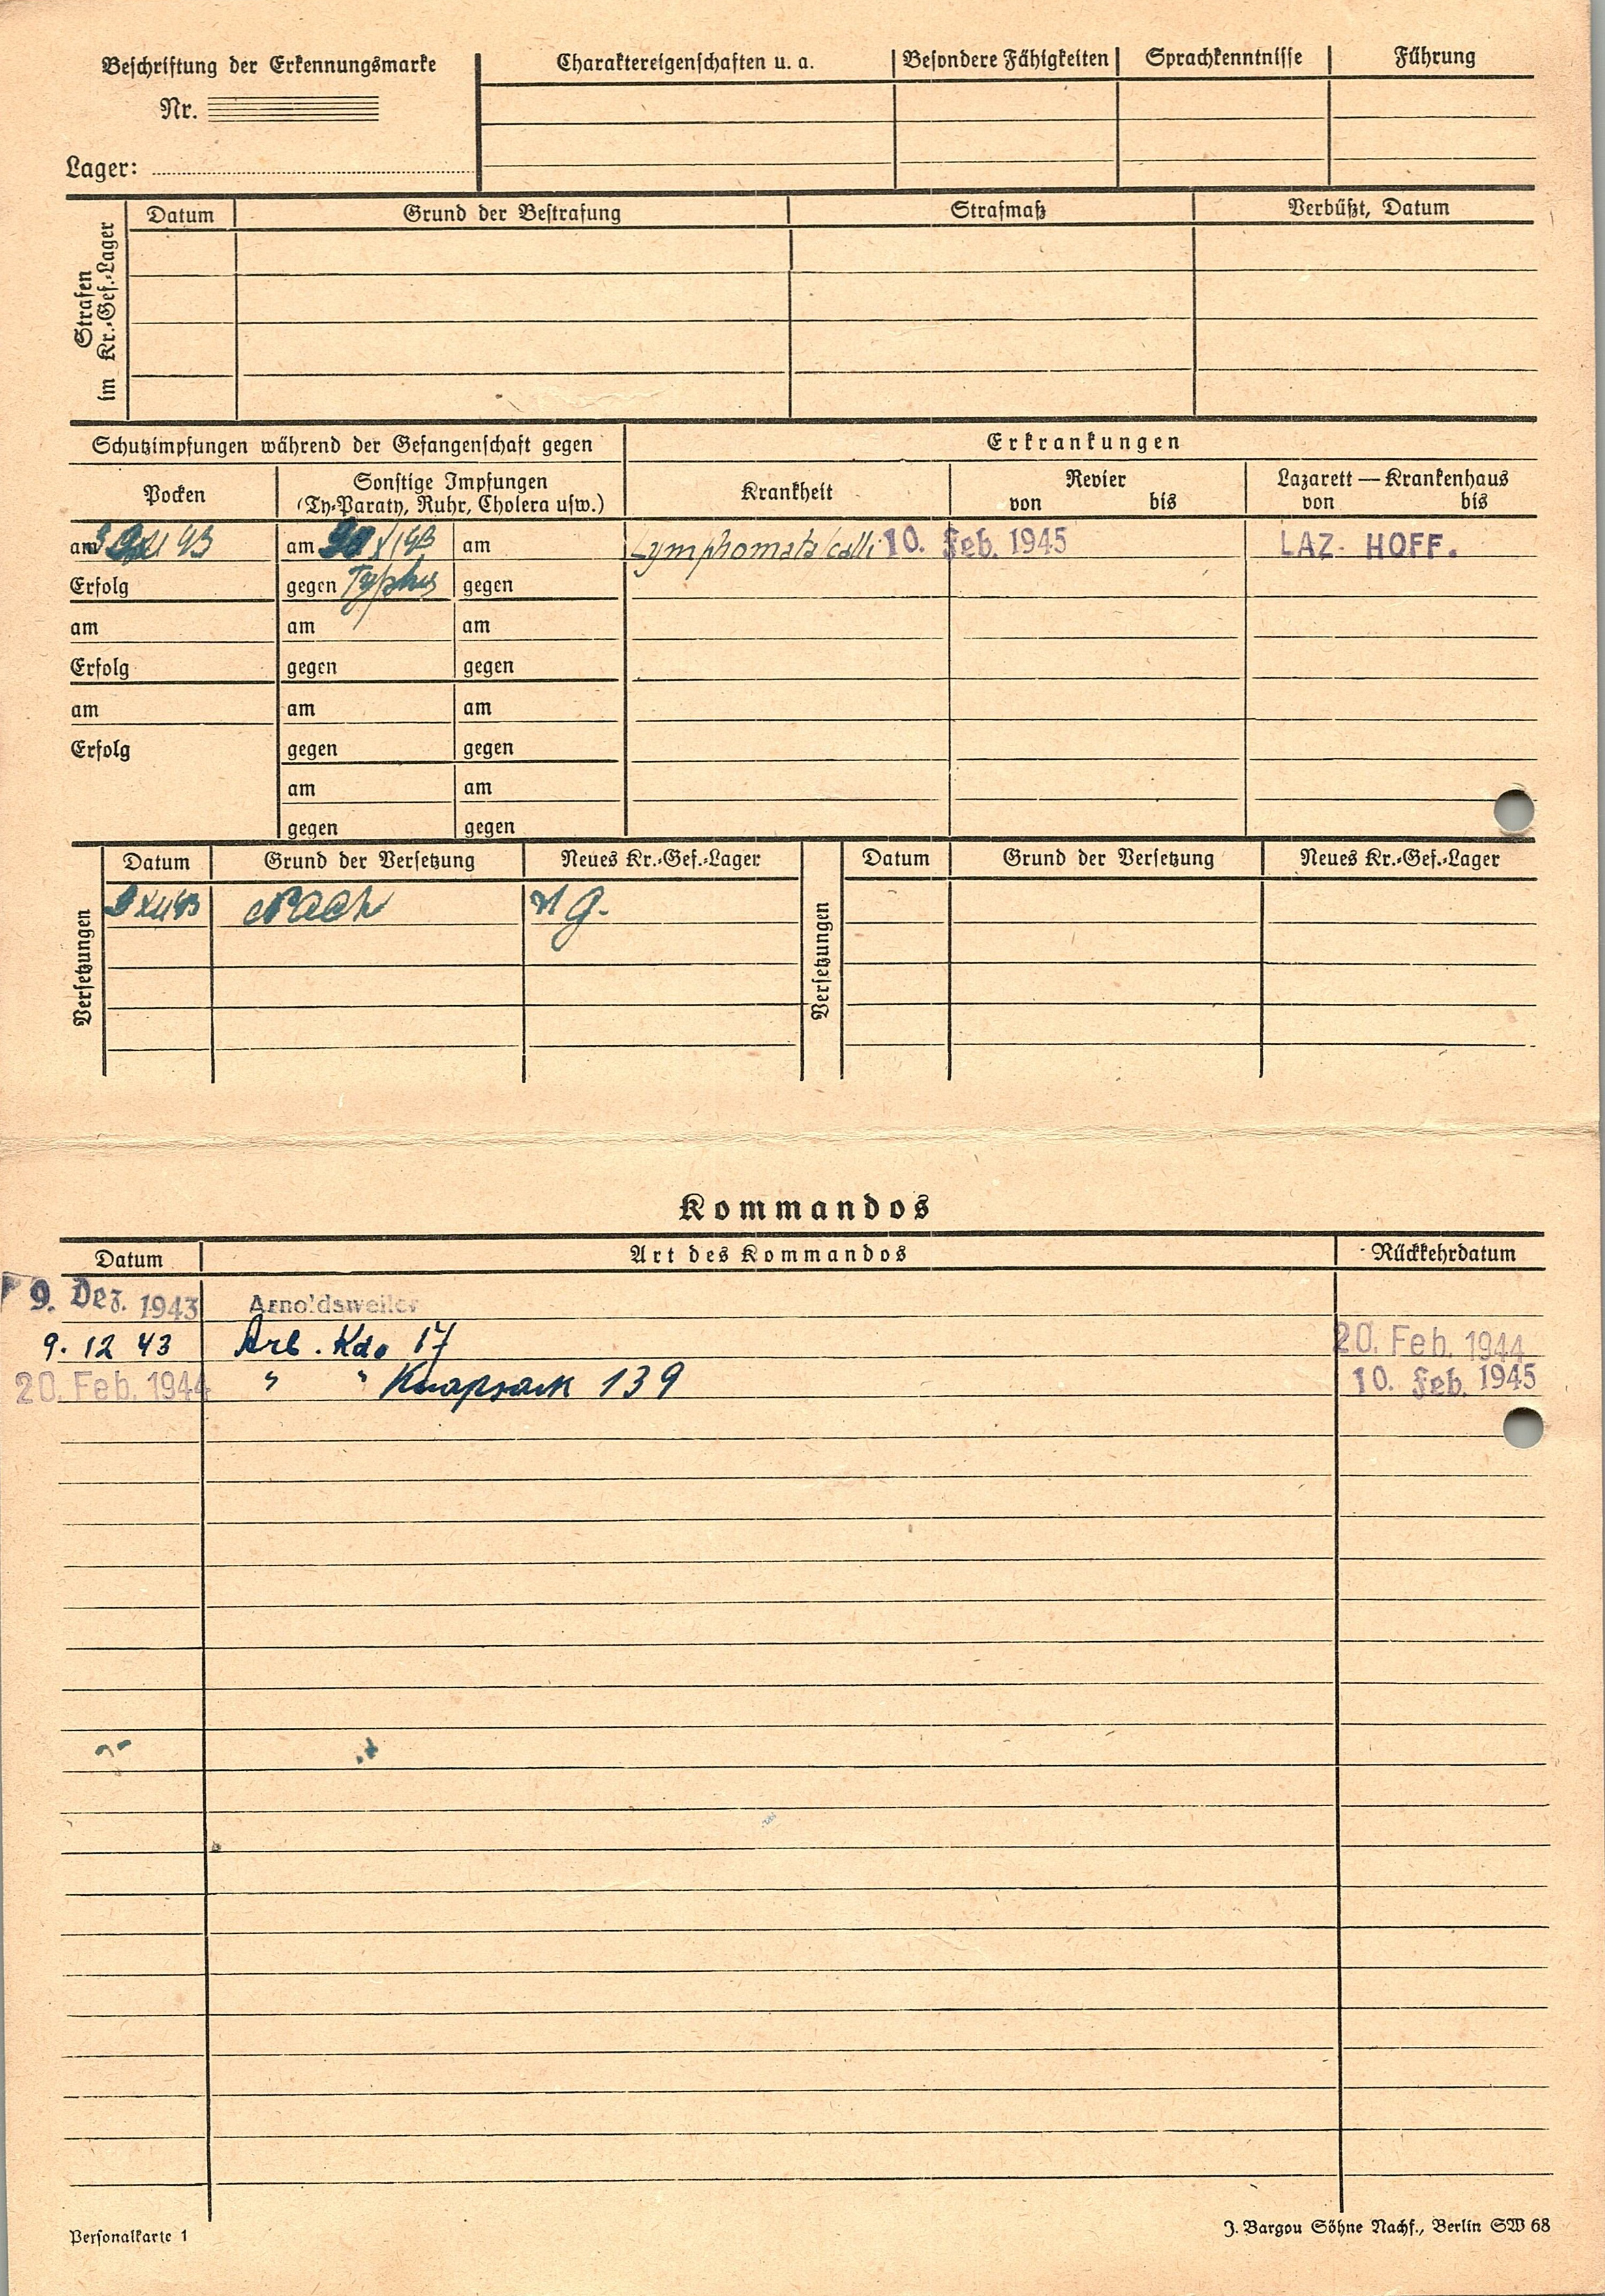 Beschriftung der Erkennungsmarke
Nr.
Lager:
Charaktereigenschaften u. a.
Besondere Fähigkeiten
Sprachkenntnisse
Führung
Strafen
im Kr.-Gef.-Lager
Datum
Grund der Bestrafung
Strafmaß
Verbüßt, Datum
Schutzimpfungen während der Gefangenschaft gegen
Erkrankungen
Pocken
Sonstige Impfungen
(Ty-Paraty, Ruhr, Cholera usw.)
Krankheit
Revier
von bis
Lazarett — Krankenhaus
von bis
am
am
am
Lymphomata colli 10. Feb. 1945 LAZ. HOFF.
Erfolg
gegen Typhus
gegen
am
am
am
Erfolg
gegen
gegen
am
am
am
Erfolg
gegen
gegen
am
am
gegen
gegen
Versetzungen
Datum
Grund der Versetzung
Neues Kr.-Gef.-Lager
Nach
Versetzungen
Datum
Grund der Versetzung
Neues Kr.-Gef.-Lager
Kommandos
Datum
Art des Kommandos
Rückkehrdatum
9. Dez. 1943 Arnoldsweiler
9. 12 43 Arb. Kdo 17 20. Feb. 1944
20. Feb. 1944 " " Knapsack 139 10. Feb. 1945
Personalkarte 1
J. Bargou Söhne Nachf., Berlin SW 68